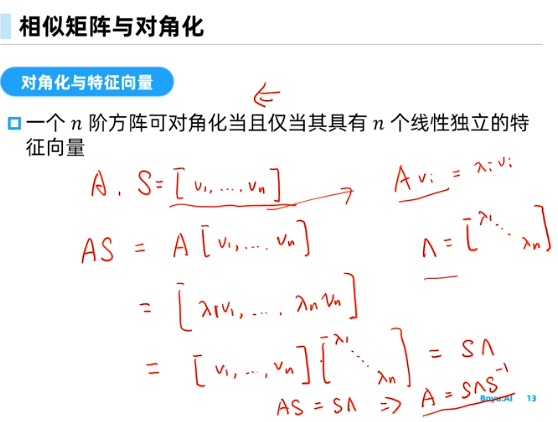 相似矩阵与对角化
对角化与特征向量
⇐
一个 n 阶方阵可对角化当且仅当其具有 n 个线性独立的特
征向量
A, S = [v₁, ..., vₙ] → Avᵢ = λᵢvᵢ
AS = A [v₁, ..., vₙ] Λ = [λ₁ ⋱ λₙ]
= [λ₁v₁, ..., λₙvₙ]
= [v₁, ..., vₙ] [λ₁ ⋱ λₙ] = SΛ
AS = SΛ ⇒ A = SΛS⁻¹
Boyu.AI 13